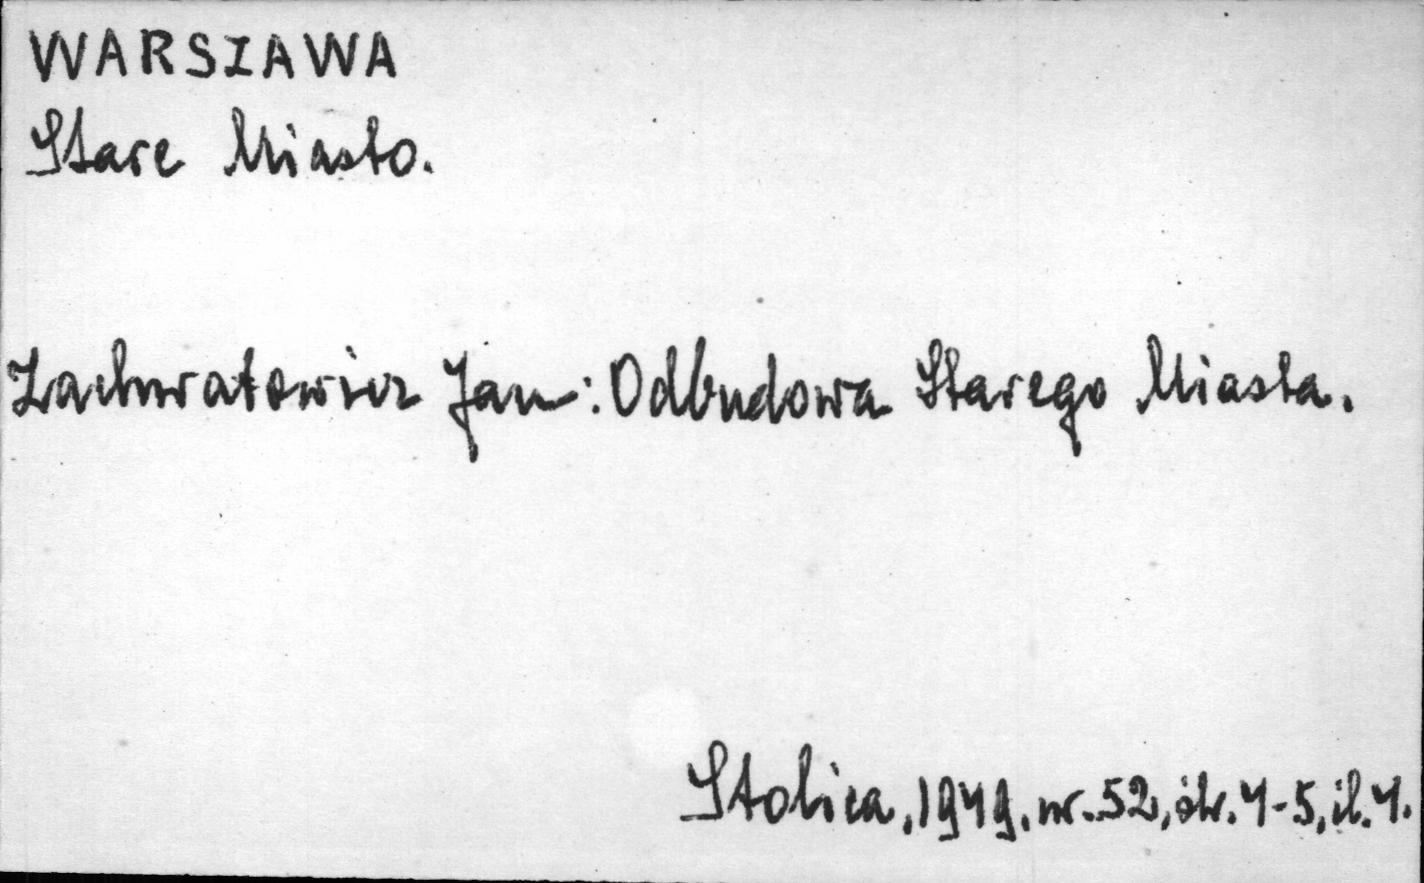 WARSZAWA
Stare Miasto.
Zachwatowicz Jan: Odbudowa Starego Miasta.
Stolica, 1949, nr. 52, str. 4-5, il. 4.